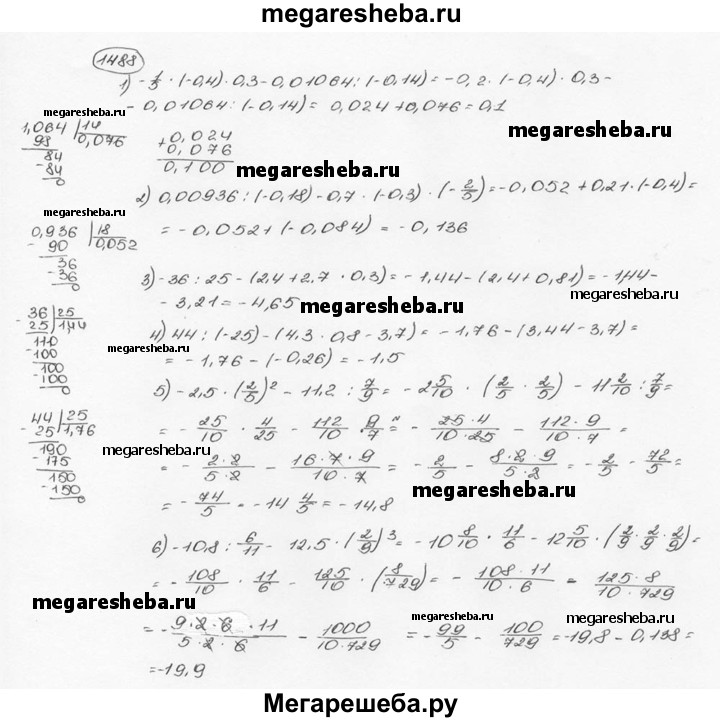 megaresheba.ru
1488
1) - 1/5 · (-0,4) · 0,3 - 0,01064 : (-0,14) = -0,2 · (-0,4) · 0,3 -
- 0,01064 : (-0,14) = 0,024 + 0,076 = 0,1
megaresheba.ru
1,064 | 14
98 | 0,076
84
-84
0
+0,024
0,076
0,100
megaresheba.ru
megaresheba.ru
2) 0,00936 : (-0,18) - 0,7 · (-0,3) · (- 2/5) = -0,052 + 0,21 · (-0,4) =
= -0,052 + (-0,084) = -0,136
megaresheba.ru
0,936 | 18
- 90 | 0,052
36
-36
0
3) -36 : 25 - (2,4 + 2,7 · 0,3) = -1,44 - (2,4 + 0,81) = -1,44 -
- 3,21 = -4,65
megaresheba.ru
megaresheba.ru
- 36 | 25
25 | 1,44
110
-100
100
-100
0
4) 44 : (-25) - (4,3 · 0,8 - 3,7) = -1,76 - (3,44 - 3,7) =
= -1,76 - (-0,26) = -1,5
megaresheba.ru
megaresheba.ru
5) -2,5 · (2/5)² - 11,2 : 7/9 = -2 5/10 · (2/5 · 2/5) - 11 2/10 : 7/9 =
= - 25/10 · 4/25 - 112/10 · 9/7 = - 25·4/10·25 - 112·9/10·7 =
- 44 | 25
25 | 1,76
190
175
150
-150
0
megaresheba.ru
= - 2·2/5·2 - 16·7·9/10·7 = - 2/5 - 8·2·9/5·2 = - 2/5 - 72/5 =
megaresheba.ru
= - 74/5 = -14 4/5 = -14,8
6) -10,8 : 6/11 - 12,5 · (2/9)³ = -10 8/10 · 11/6 - 12 5/10 · (2/9 · 2/9 · 2/9) =
= - 108/10 · 11/6 - 125/10 · (8/729) = - 108·11/10·6 - 125·8/10·729
megaresheba.ru
megaresheba.ru
= - 9·2·6·11/5·2·6 - 1000/10·729 = - 99/5 - 100/729 = -19,8 - 0,138 =
= -19,9
Мегарешеба.ру